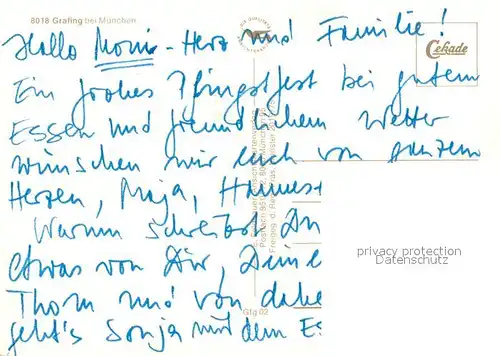 8018 Grafing bei München
Hallo Moni-Herz und Familie!
Cekade
Ein frohes Pfingstfest bei gutem
Essen und freundlichem Wetter
wünschen wir euch von ganzem
Herzen, Maja, Hannes
Warum schreibst Du
etwas von Dir, Deine
Thom und von
geht's Sonja mit dem Es
Gfg 02
privacy protection
Datenschutz